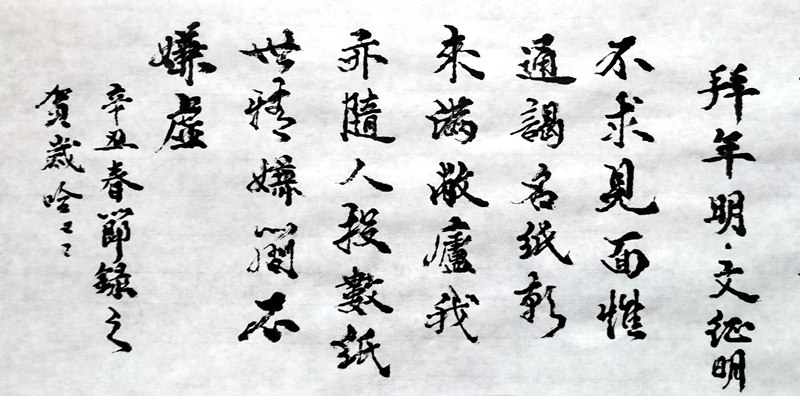 拜年明·文征明
不求見面惟
通謁名紙朝
來滿敝廬我
亦隨人投數紙
世情嫌簡不
嫌虛
辛丑春節録之
賀歲哈々々